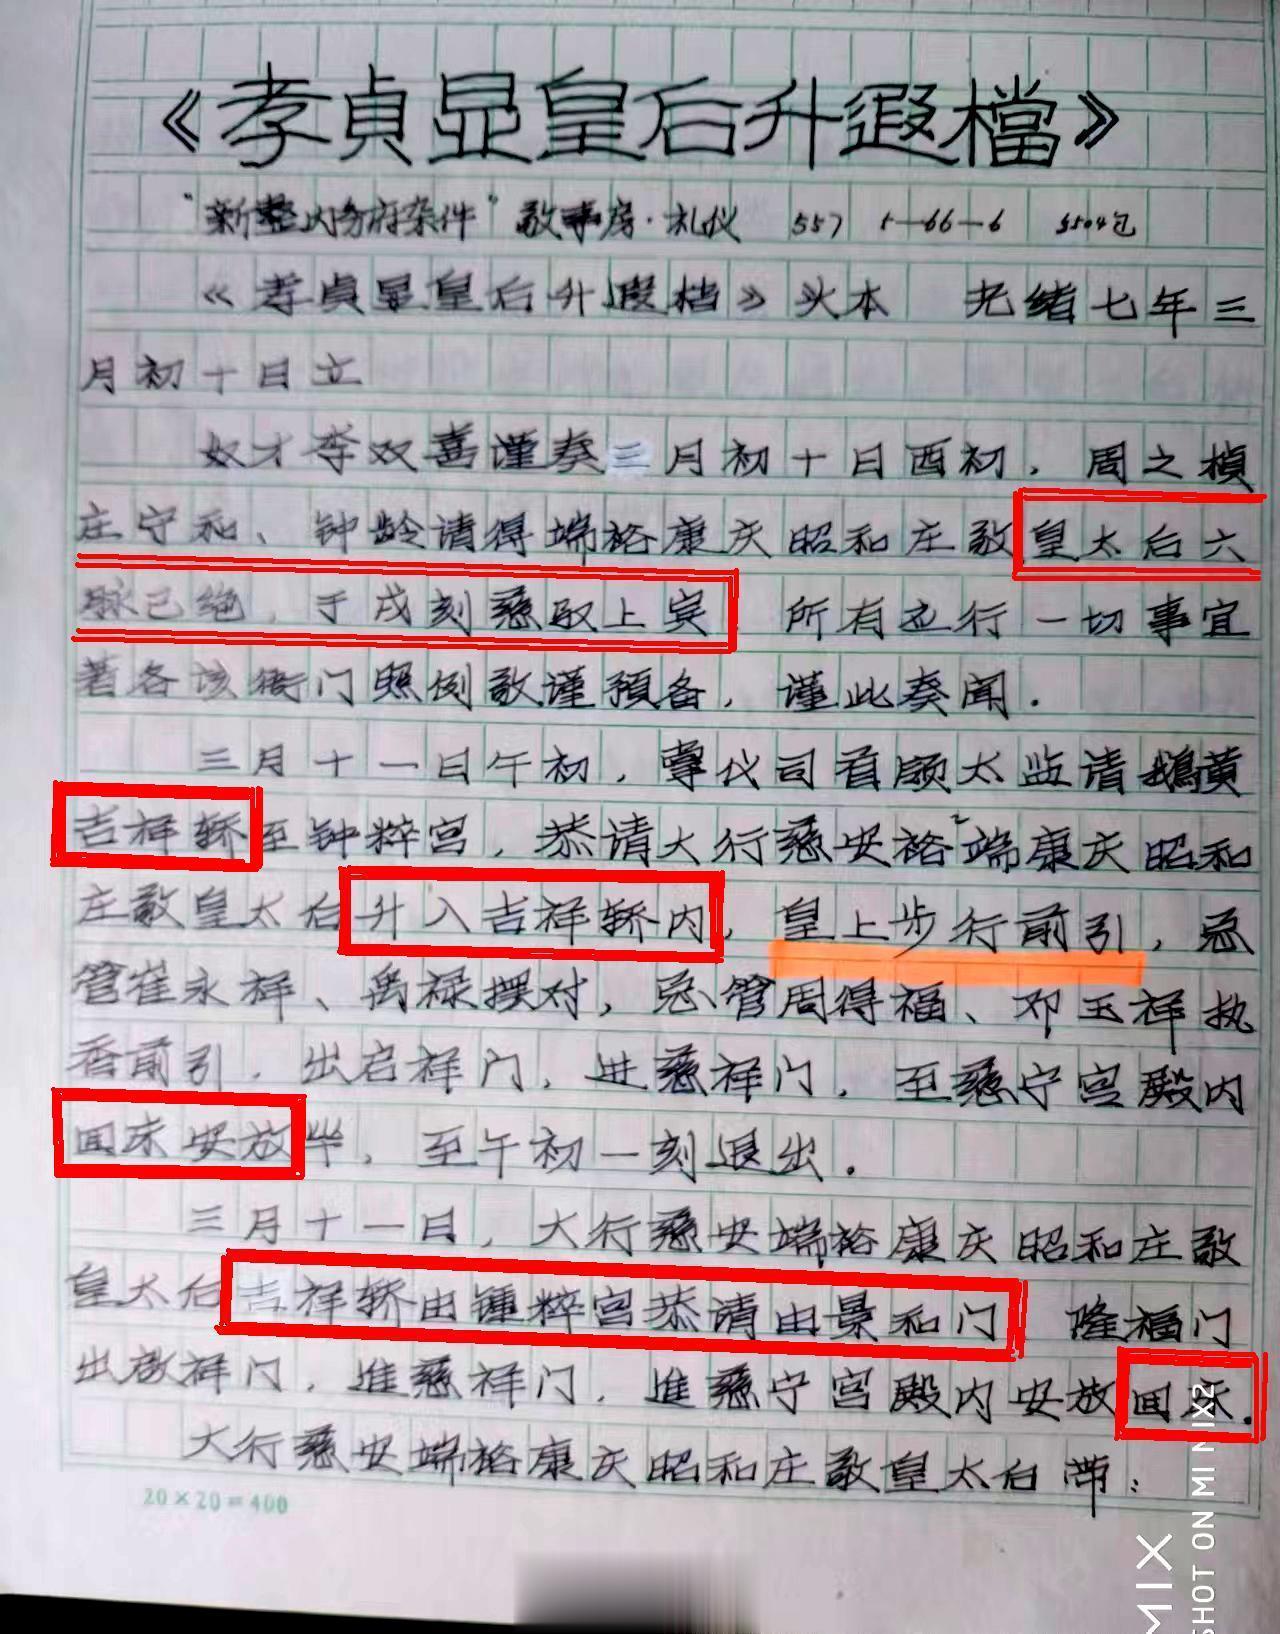 《孝貞显皇后升遐檔》
"新整内务府杂件"敬事房·礼仪 557 5-66-6 3504包
《孝貞显皇后升遐档》头本 光绪七年三
月初十日立
奴才李双喜谨奏三月初十日酉初，周之楨
庄守和、钟龄请得端裕康庆昭和庄敬皇太后六
脉已绝，于戌刻慈驭上宾 所有应行一切事宜
著各该衙门照例敬谨預备，谨此奏闻．
三月十一日午初，掌仪司首领太监请鵝黄
吉祥轿至钟粹宫，恭请大行慈安裕端康庆昭和
庄敬皇太后升入吉祥轿内，皇上步行前引，总
管崔永祥、禹禄摆对，总管周得福、邓玉祥执
香前引，出启祥门，进慈祥门，至慈宁宫殿内
回床安放毕，至午初一刻退出．
三月十一日，大行慈安端裕康庆昭和庄敬
皇太后吉祥轿由鍾粹宫恭请由景和门 隆福门
出啟祥门，進慈祥门，進慈宁宫殿内安放回床．
大行慈安端裕康庆昭和庄敬皇太后带：
20×20=400
MIX
SHOT ON MI MIX2